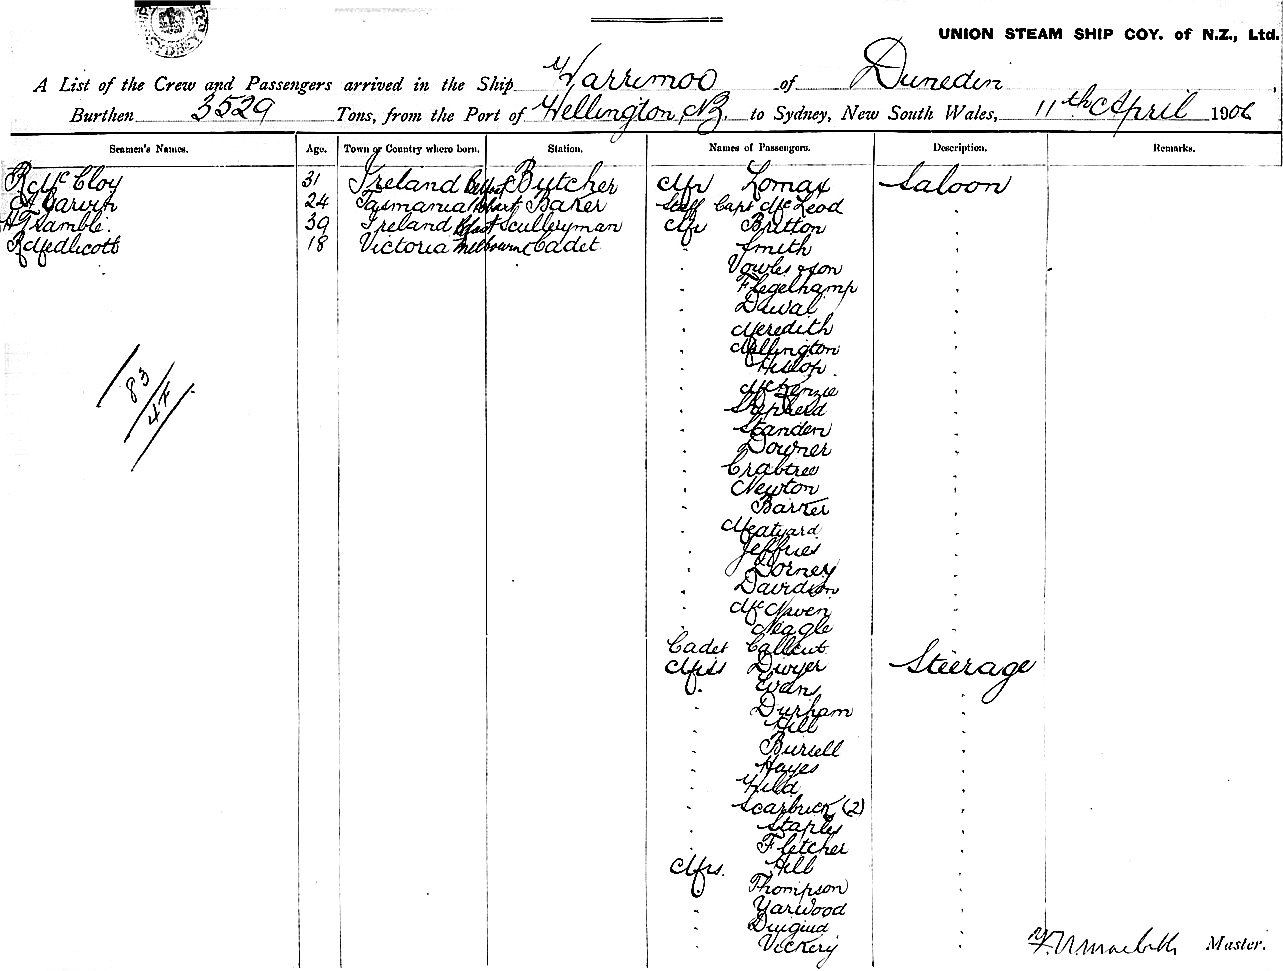 UNION STEAM SHIP COY. of N.Z., Ltd.
A List of the Crew and Passengers arrived in the Ship Warrimoo of Dunedin
Burthen 3529 Tons, from the Port of Wellington N.Z. to Sydney, New South Wales, 11th April 1906
Seamen's Names. Age. Town or Country where born. Station. Names of Passengers. Description. Remarks.
R McCloy 31 Ireland Belfast Butcher Mr Lomax Saloon
A Garvin 24 Tasmania Hobart Baker Staff Capt McLeod
H Tramble. 39 Ireland Belfast Sculleryman Mr Britton
R Medlicott 18 Victoria Melbourne Cadet Smith
Vowles & son
Flegelhamp
Duval
Meredith
Mellington
Hislop
McKenzie
Shepherd
Standen
Downer
Crabtree
Newton
Barker
Meatyard
Jeffries
Dorney
Davidson
McNiven
Neagle
Cadet Callcut
Miss Dwyer Steerage
Evans
Durham
Hill
Bursell
Hayes
Hild
Scarbrick (2)
Staples
Fletcher
Mrs. Hill
Thompson
Yarwood
Duiguid
Vickery
83
4F
Master.